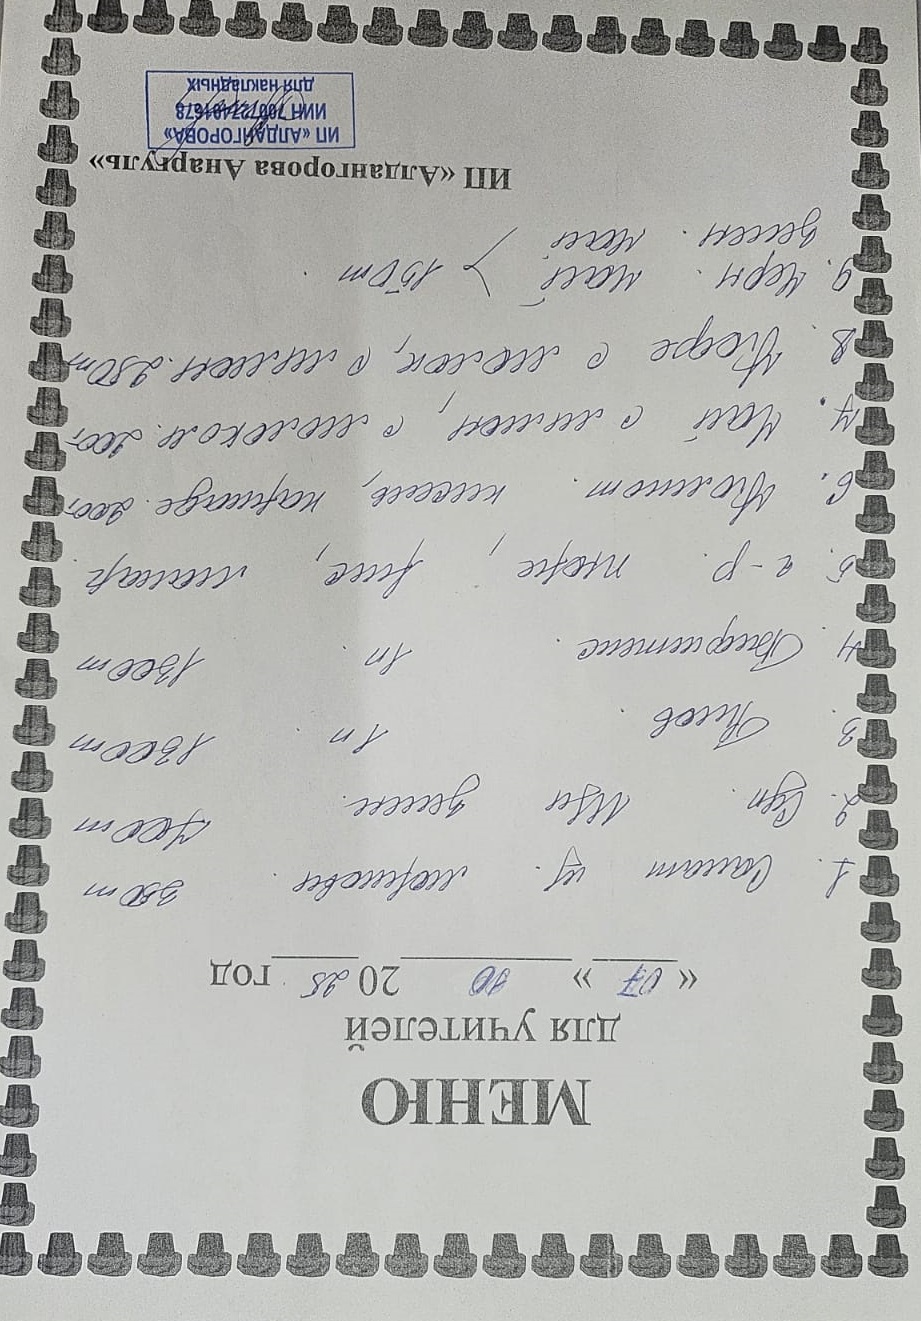 МЕНЮ
для учителей
« 07 » 10 2025 год
1. Салат из моркови 350т
2. Суп 700т
3. Плов 1п 1300т
4. Бефштекс 1п 1300т
5. г-р пюре, рис, макар.
6. Компот. кисель, каркаде. 200т
7. Чай с лимон, с молоком. 200т
8. Кофе с молок, с лимон. 250т
9. Черн. чай 150т
Зелен. чай
ИП «Алдангорова Анаргуль»
ИП «АЛДАНГОРОВА»
ИИН
для накладных